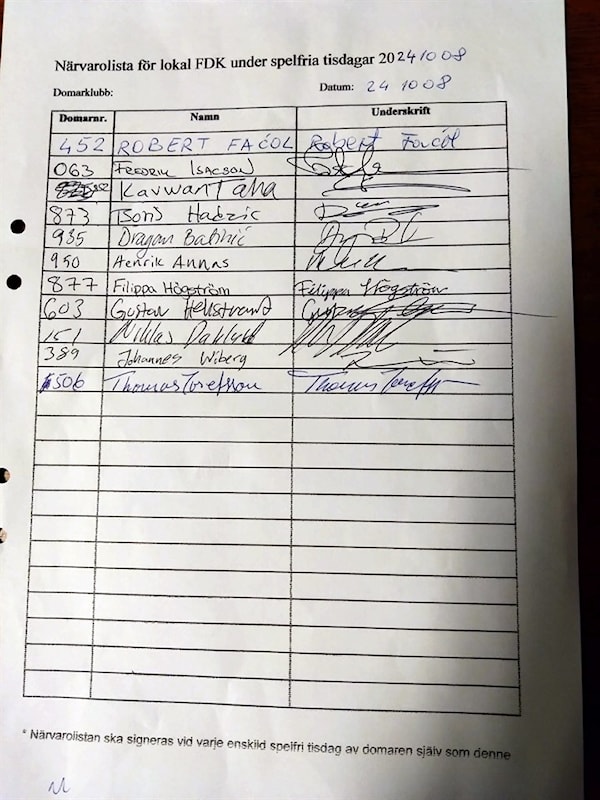 Närvarolista för lokal FDK under spelfria tisdagar 20241008
Domarklubb: Datum: 241008
Domarnr. Namn Underskrift
452 ROBERT FAĆOL Robert Faćol
063 FREDRIK ISACSON
Kavwan Taha
873 Boris Hadzic
935 Dragan Babinic
950 Henrik Annas
877 Filippa Högström Filippa Högström
603 Gustav Hellstrand
151 Niklas
389 Johannes Wiberg
506 Thomas Josefsson Thomas Josefsson
* Närvarolistan ska signeras vid varje enskild spelfri tisdag av domaren själv som denne